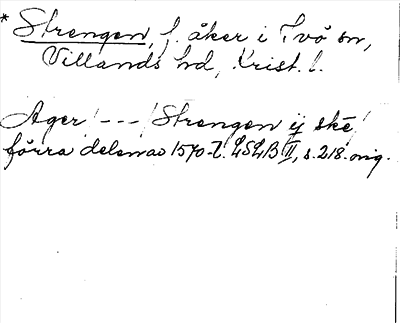 * Strengen, f. åker i Tvö sn,
Villands hd, Krist. l.
Ager / - - - / Strengen ij skē /
förra delen av 1570-t. LSLB II, s. 218. orig.